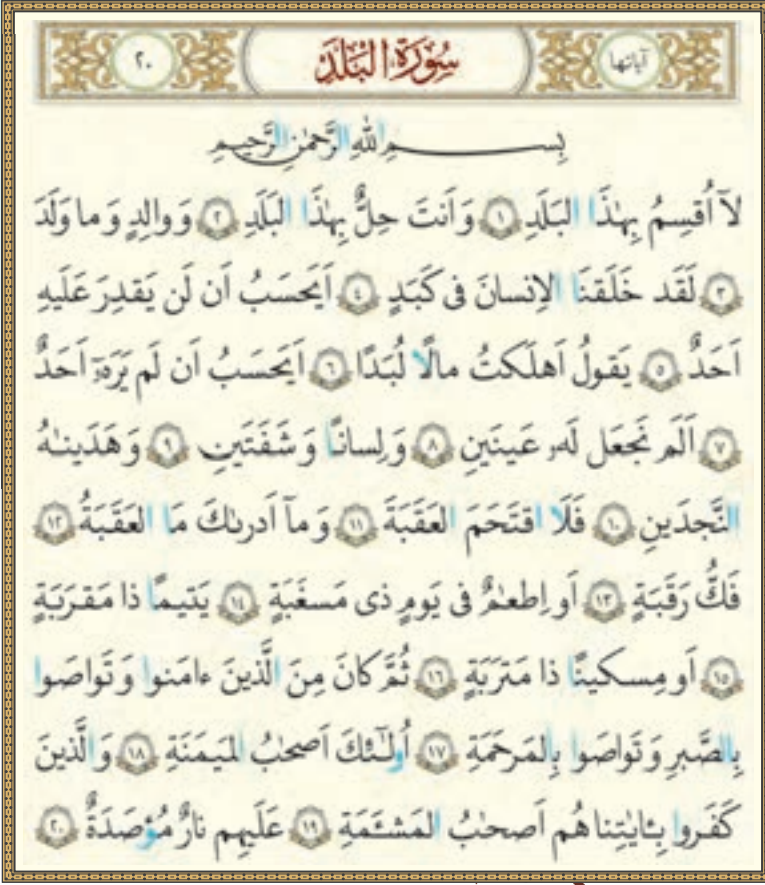 آیاتها سُورَةُ البَلَدِ ٢٠
بِسمِ اللهِ الرَّحمٰنِ الرَّحيمِ
لآ اُقسِمُ بِهٰذَا البَلَدِ ﴿١﴾ وَ اَنتَ حِلٌّ بِهٰذَا البَلَدِ ﴿٢﴾ وَ والِدٍ وَ ما وَلَدَ
﴿٣﴾ لَقَد خَلَقنَا الاِنسانَ فی كَبَدٍ ﴿٤﴾ اَيَحسَبُ اَن لَن يَقدِرَ عَلَيهِ
اَحَدٌ ﴿٥﴾ يَقولُ اَهلَكتُ مالًا لُبَدًا ﴿٦﴾ اَيَحسَبُ اَن لَم يَرَهۥٓ اَحَدٌ
﴿٧﴾ اَلَم نَجعَل لَهۥ عَينَينِ ﴿٨﴾ وَ لِسانًا وَ شَفَتَينِ ﴿٩﴾ وَ هَدَينٰهُ
النَّجدَينِ ﴿١٠﴾ فَلَا اقتَحَمَ العَقَبَةَ ﴿١١﴾ وَ مآ اَدرىٰكَ مَا العَقَبَةُ ﴿١٢﴾
فَكُّ رَقَبَةٍ ﴿١٣﴾ اَو اِطعٰمٌ فی يَومٍ ذی مَسغَبَةٍ ﴿١٤﴾ يَتيمًا ذا مَقرَبَةٍ
﴿١٥﴾ اَو مِسكينًا ذا مَترَبَةٍ ﴿١٦﴾ ثُمَّ كانَ مِنَ الَّذينَ ءامَنوا وَ تَواصَوا
بِالصَّبرِ وَ تَواصَوا بِالمَرحَمَةِ ﴿١٧﴾ اُولٰٓئِكَ اَصحٰبُ المَيمَنَةِ ﴿١٨﴾ وَ الَّذينَ
كَفَروا بِـٔايٰتِنا هُم اَصحٰبُ المَشـَٔمَةِ ﴿١٩﴾ عَلَيهِم نارٌ مُؤصَدَةٌ ﴿٢٠﴾